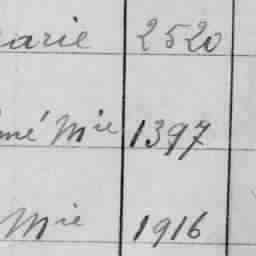 arie 2520
mé Mie 1397
Mie 1916